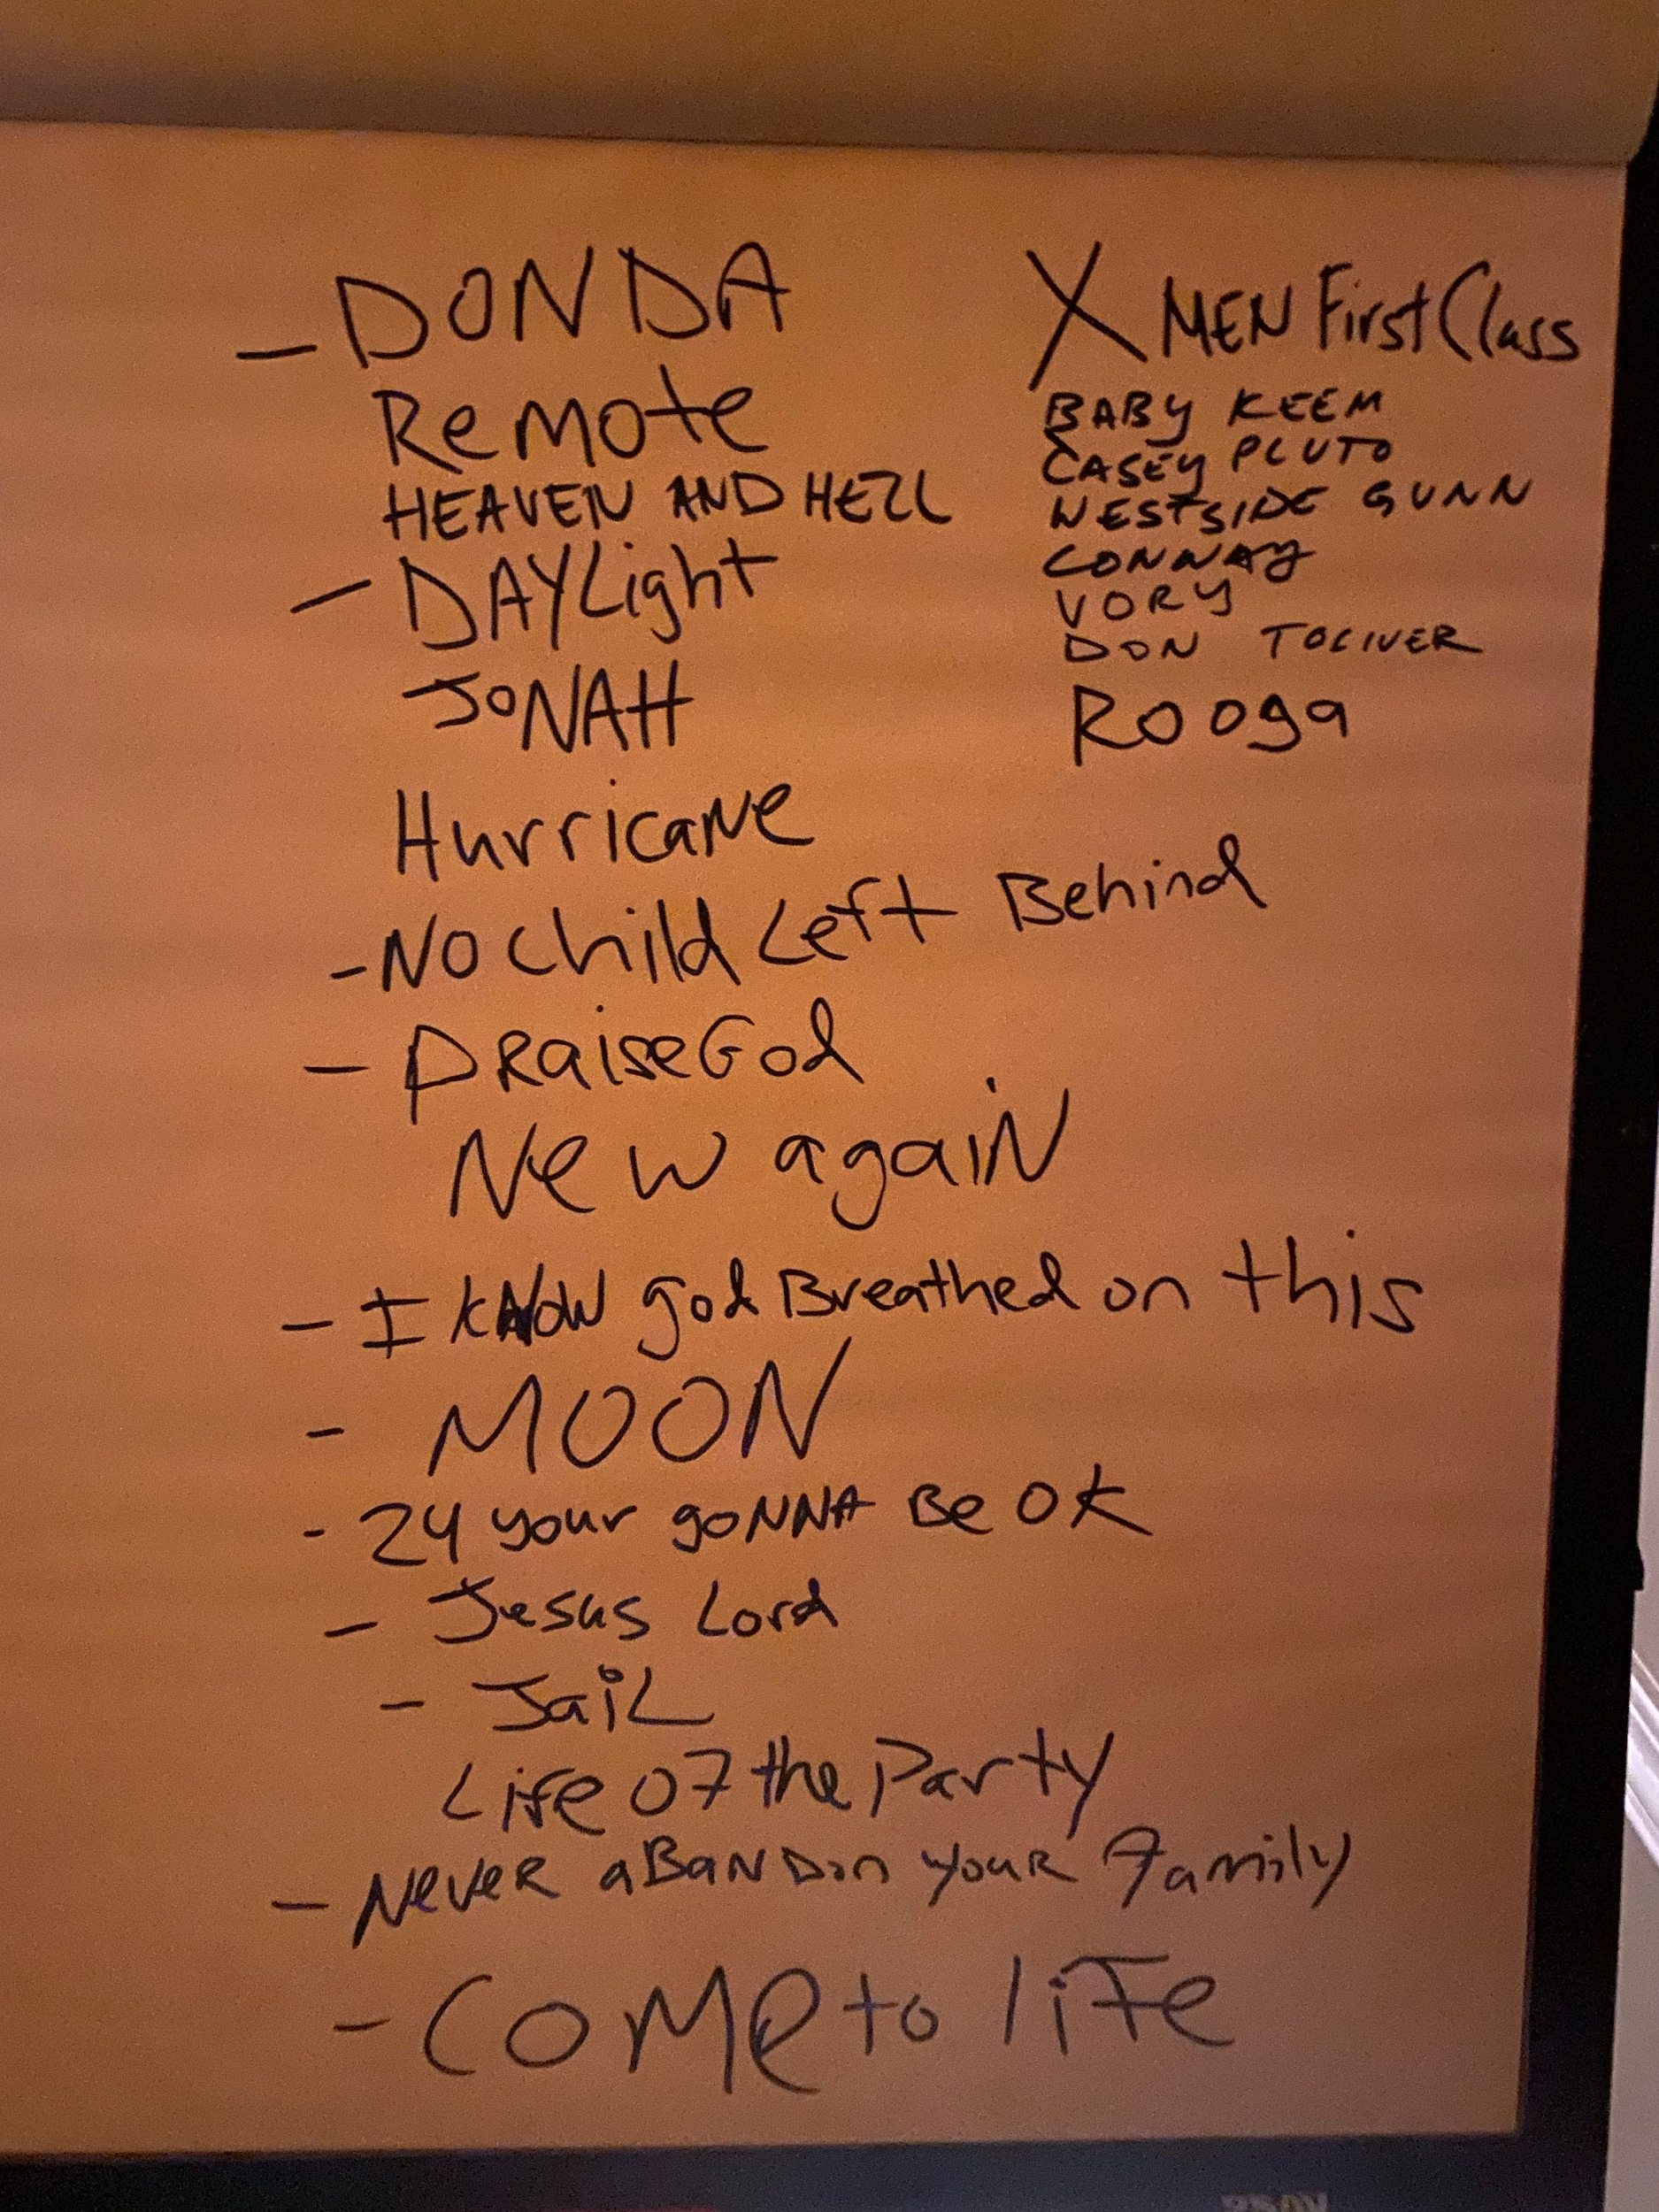 - DONDA
Remote
HEAVEN AND HELL
- DAYLight
JONAH
Hurricane
- NO Child Left Behind
- PRaiseGod
New again
- I KNOW god Breathed on this
- MOON
- 24 your goNNA Be OK
- Jesus Lord
- JaiL
Life of the Party
- NeveR aBaNDon youR family
- COMe to life
X MEN First Class
BABY KEEM
CASEY PLUTO
WESTSIDE GUNN
CONWAY
VORY
DON TOLIVER
Rooga